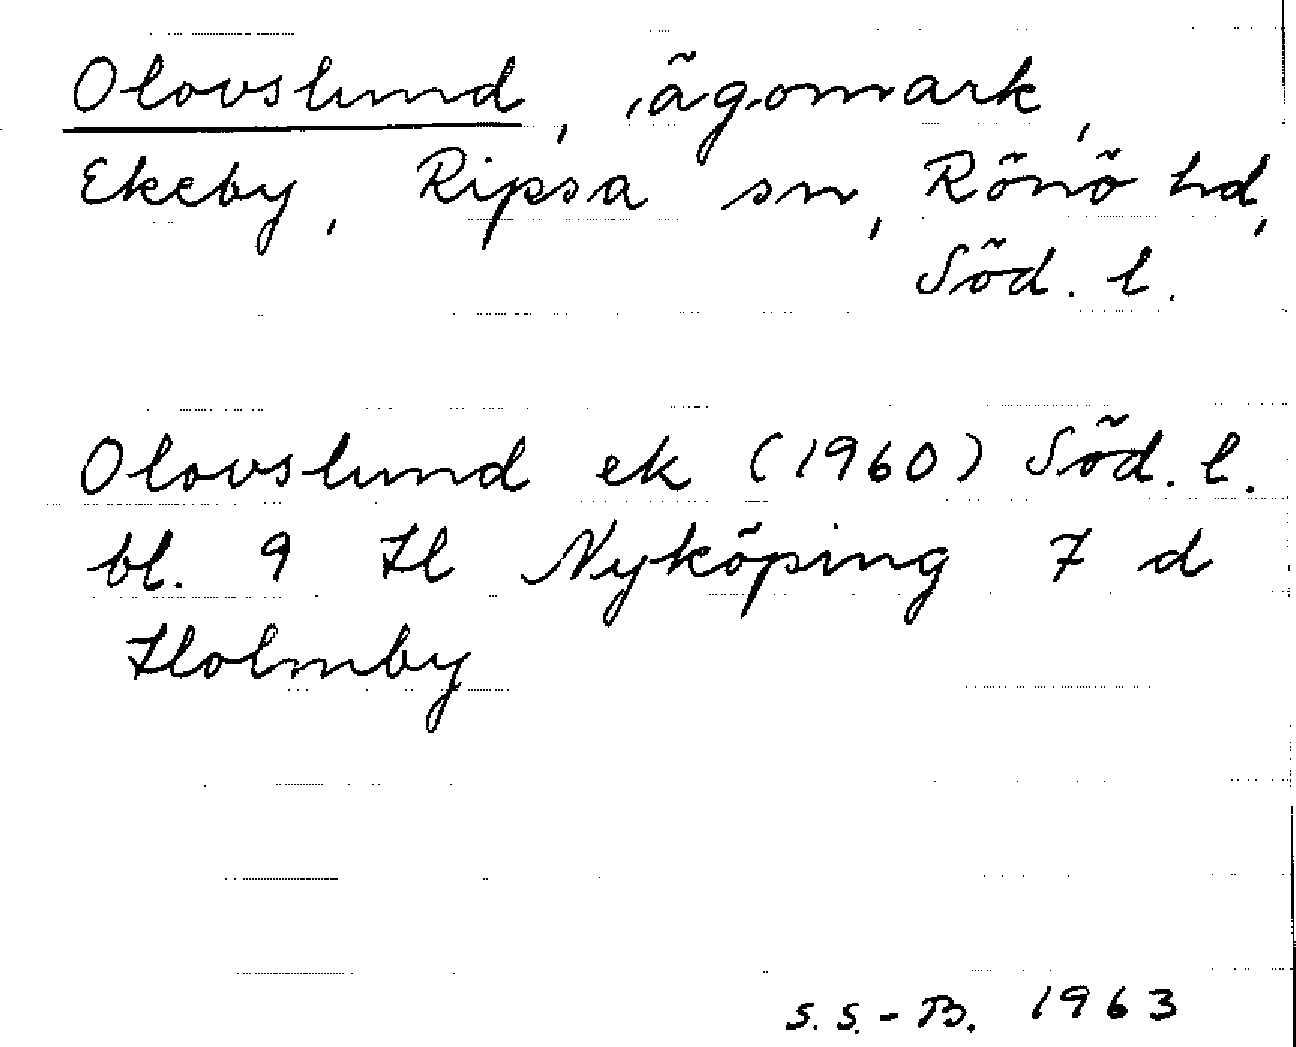 Olovslund, ägomark,
Ekeby, Ripsa sn, Rönö hd,
Söd. l.
Olovslund ek (1960) Söd. l.
bl. 9 H Nyköping 7 d
Holmby
S. S.-B. 1963